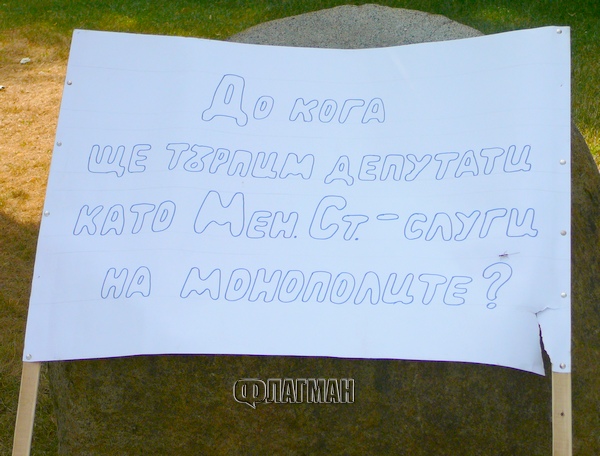 До кога
ще търпим депутати
като Мен. Ст. - слуги
на монополите?
ФЛАГМАН